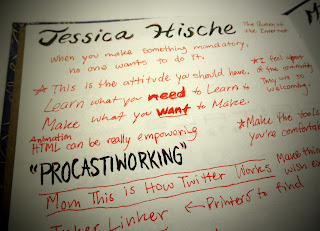 Jessica Hische The Queen of the Internet
When you make something mandatory,
no one wants to do it.
* This is the attitude you should have.
Learn what you need to Learn to
Make what you want to Make.
* I feel
of the community
They are so
welcoming.
Animation
HTML can be really empowering
"PROCASTIWORKING"
* Make the tools
you're comfortable
Mom This is How Twitter Works
Make things
wish ex
Inker Linker ← Printers to find